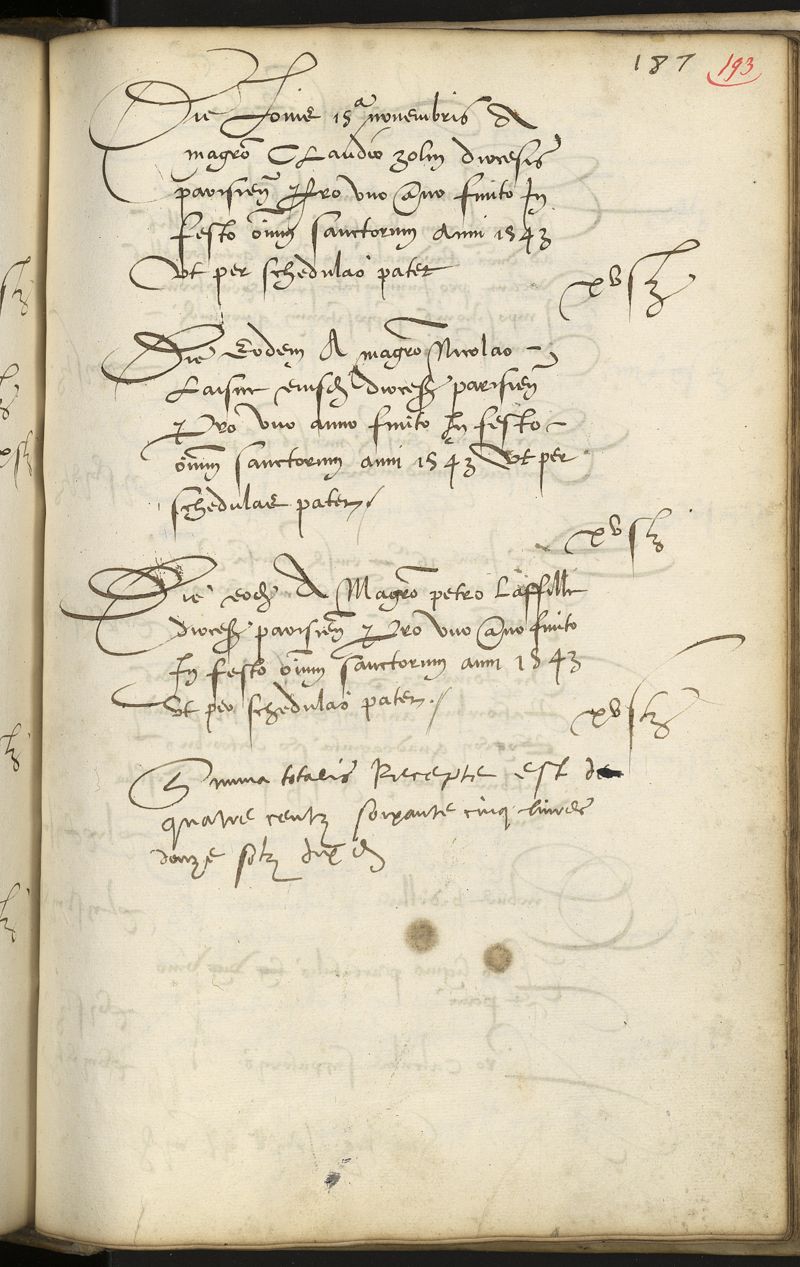 187 193
Die Jovis 15ª novembris A
magrō Claudio Jolin diocesis
parisien̄ Pro uno an̄o finito In
festo om̄niū sanctorum anni 1543
Ut per schedulas patet
xv s̄
Die Eodem A magrō Nicolao
eiusd diocess parisien̄
Pro uno anno finito In festo
om̄niū sanctorum anni 1543 Ut per
schedulas patet
xv s̄
Die eodē A Magrō petro Laffille
diocess parisien̄ Pro uno an̄o finito
In festo om̄niū sanctorum anni 1543
Ut per schedulas patet
xv s̄
Summa totalis Recepte est de
quatre centz soixante cinq livres
douze solz dix d